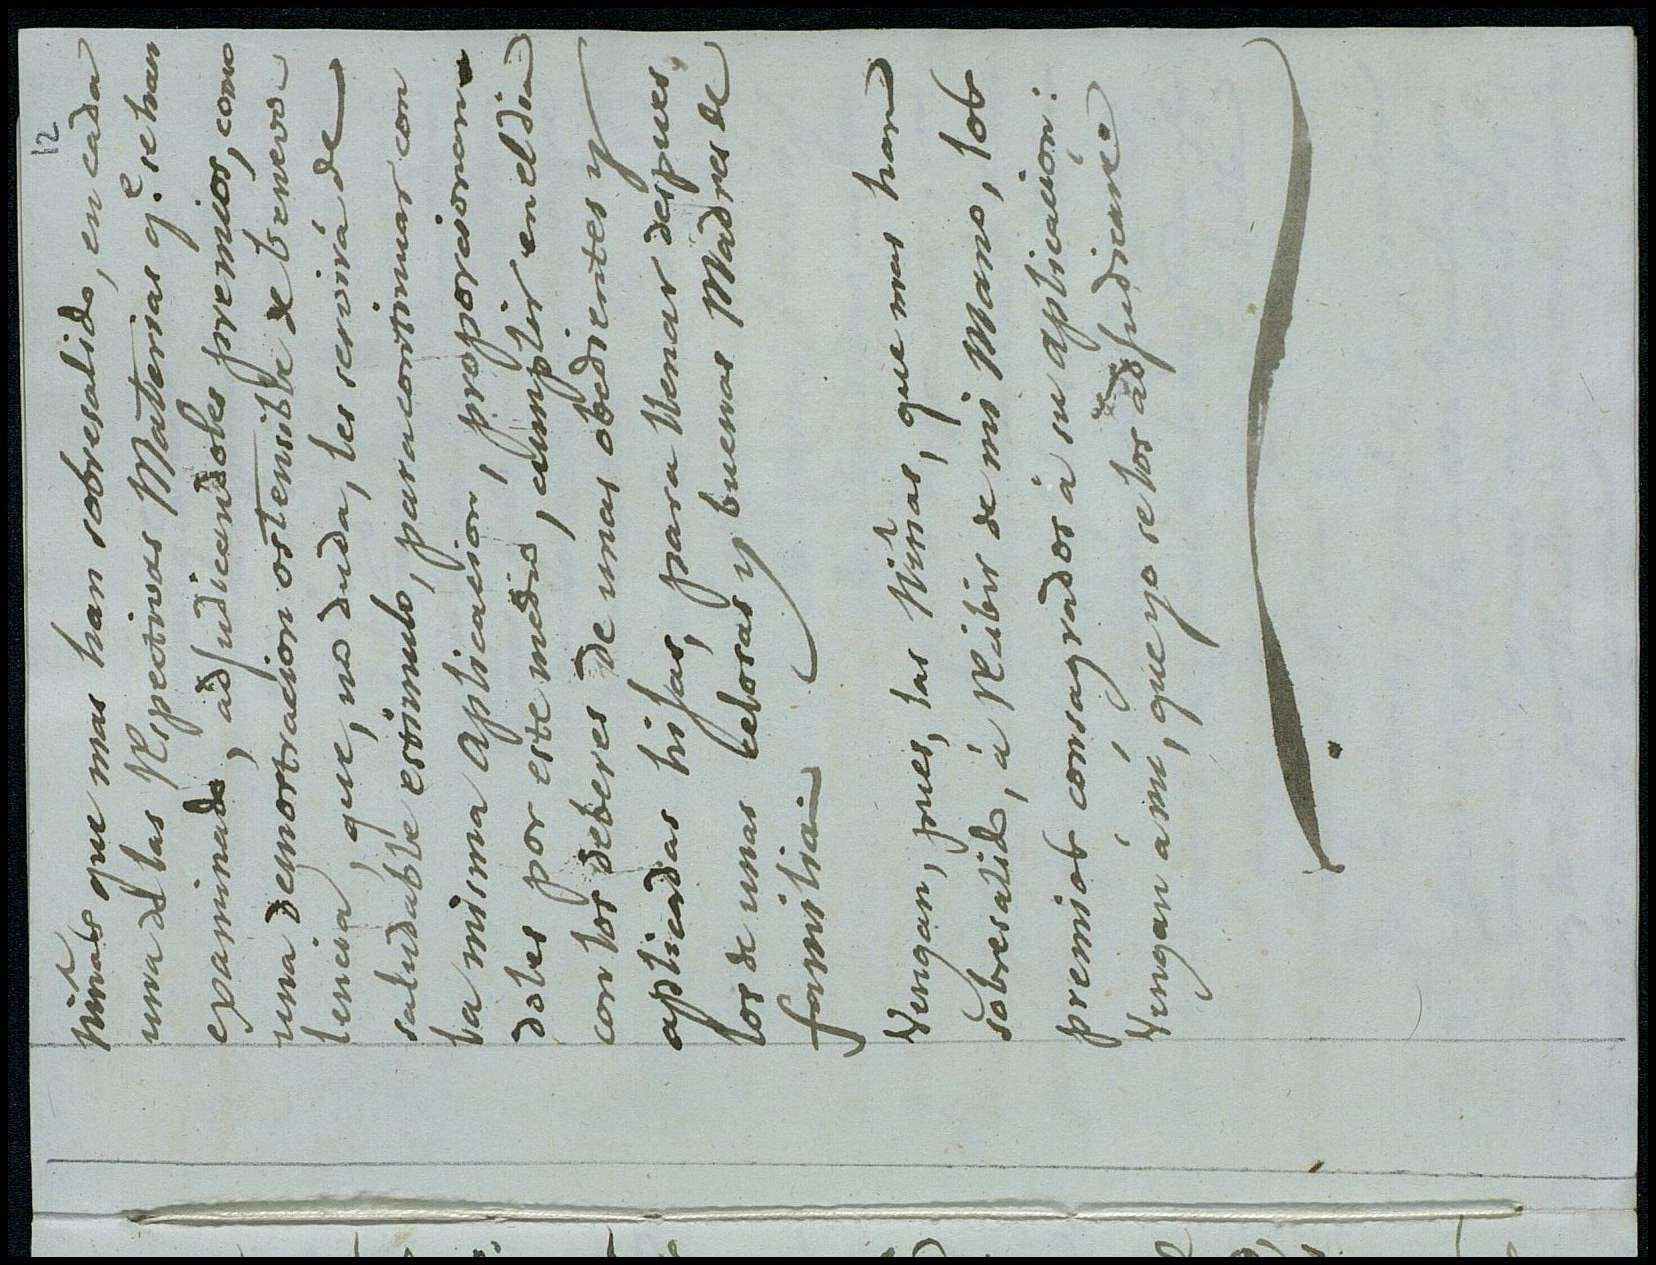 12
niñas que mas han sobresalido, en cada
una de las Respectivas Materias q.e se han
examinado, adjudicandoles premios, como
una demostracion ostensible de benevo
lencia, que, no duda, les servirá de
saludable estimulo, para continuar con
la misma aplicacion, proporcionan
doles por este medio, cumplir en el dia
con los deberes de unas obedientes y
aplicadas hijas, para llenar despues,
los de unas celosas y buenas Madres de
familia.
Vengan, pues, las Niñas, que mas han
sobresalido, á Recibir de mi Mano, los
premios consagrados á su aplicación:
Vengan á mi, que yo se los adjudicaré